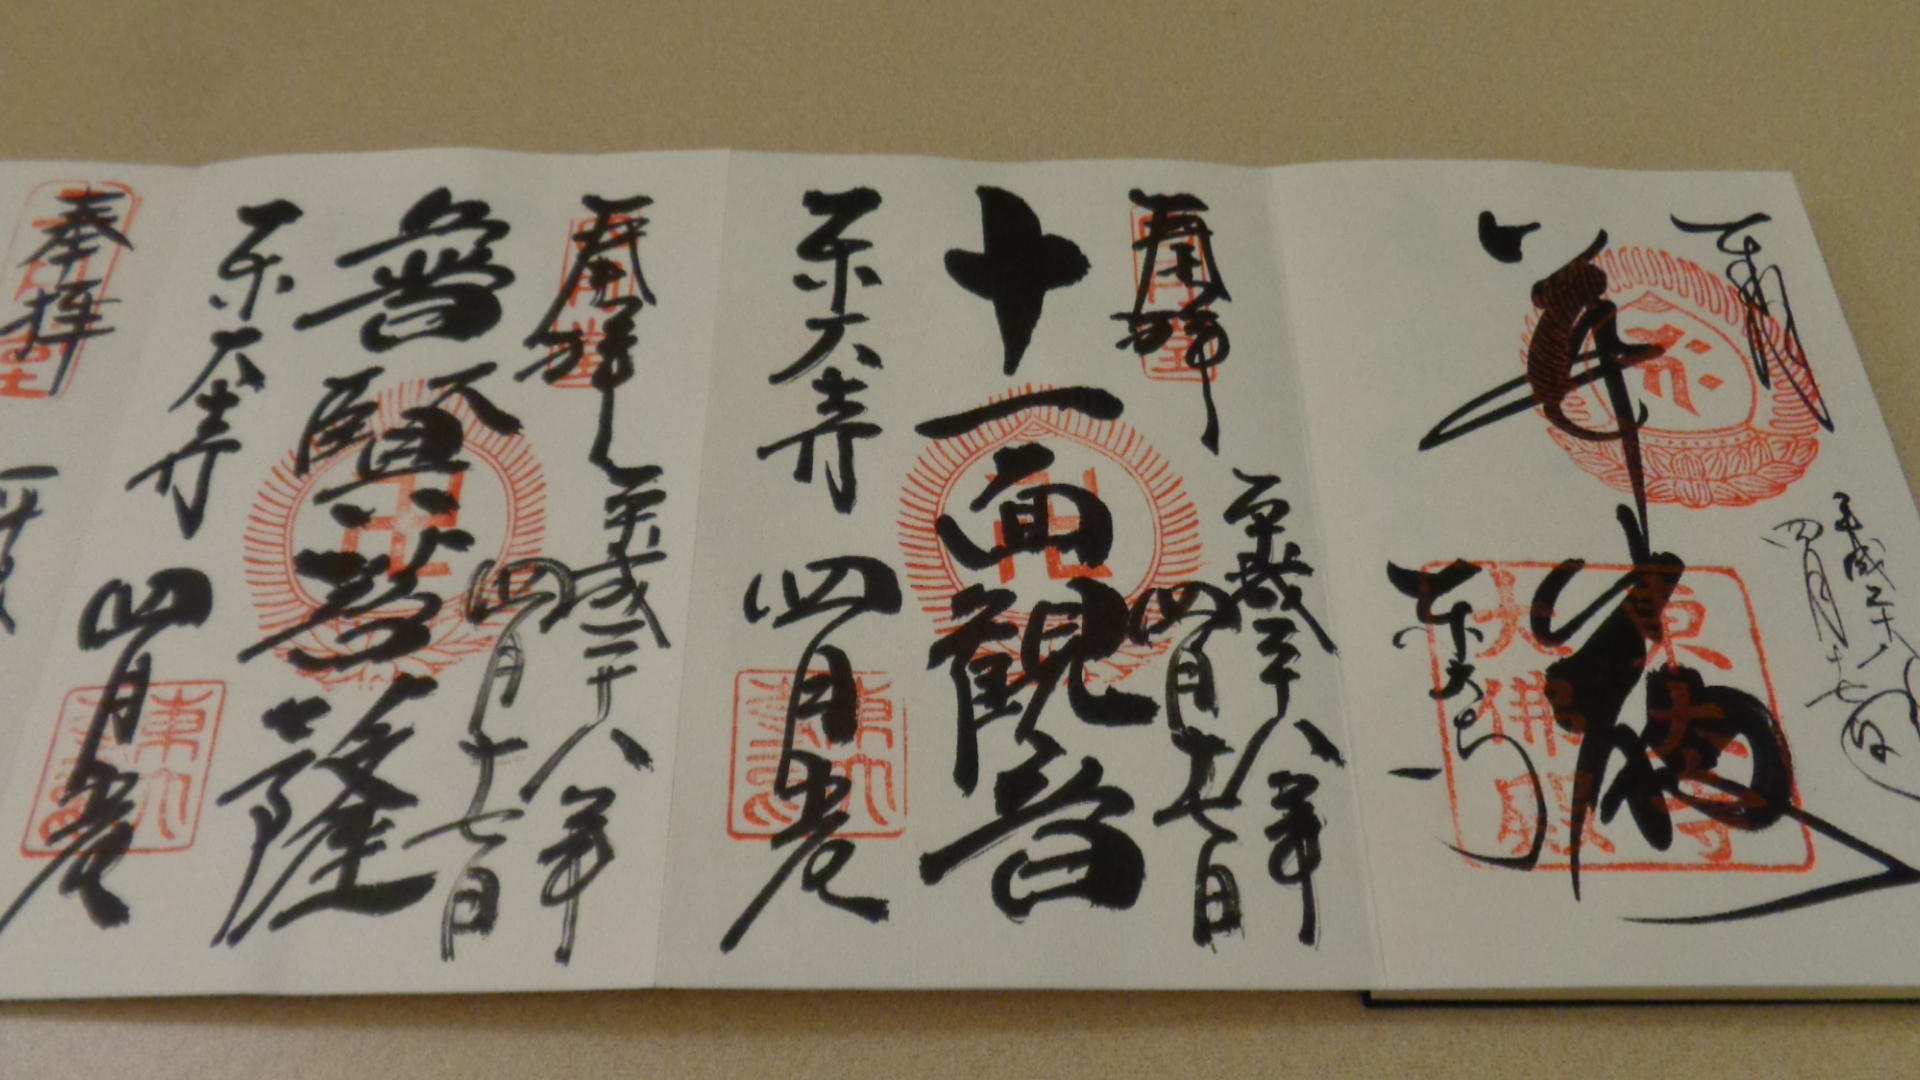 奉拝
平成二十八年
四月十七日
華厳
東大寺
東大寺
大佛殿
奉拝
平成二十八年
四月十七日
十一面観音
東大寺 四月堂
奉拝
平成二十八年
四月十七日
普賢菩薩
東大寺 四月堂
奉拝